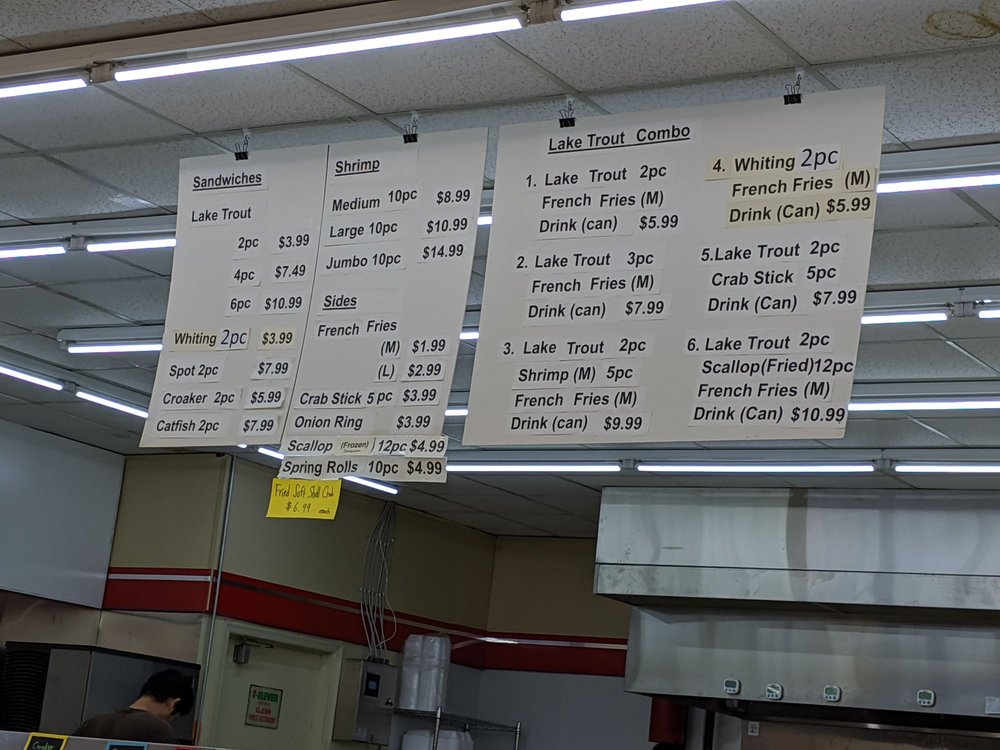 Sandwiches
Lake Trout
2pc $3.99
4pc $7.49
6pc $10.99
Whiting 2pc $3.99
Spot 2pc $7.99
Croaker 2pc $5.99
Catfish 2pc $7.99
Shrimp
Medium 10pc $8.99
Large 10pc $10.99
Jumbo 10pc $14.99
Sides
French Fries
(M) $1.99
(L) $2.99
Crab Stick 5pc $3.99
Onion Ring $3.99
Scallop (Frozen) 12pc $4.99
Spring Rolls 10pc $4.99
Fried Soft Shell Crab
$6.99 each
Lake Trout Combo
1. Lake Trout 2pc
French Fries (M)
Drink (can) $5.99
2. Lake Trout 3pc
French Fries (M)
Drink (can) $7.99
3. Lake Trout 2pc
Shrimp (M) 5pc
French Fries (M)
Drink (can) $9.99
4. Whiting 2pc
French Fries (M)
Drink (Can) $5.99
5.Lake Trout 2pc
Crab Stick 5pc
Drink (Can) $7.99
6. Lake Trout 2pc
Scallop(Fried)12pc
French Fries (M)
Drink (Can) $10.99
7-ELEVEN
CLEAN
Croaker